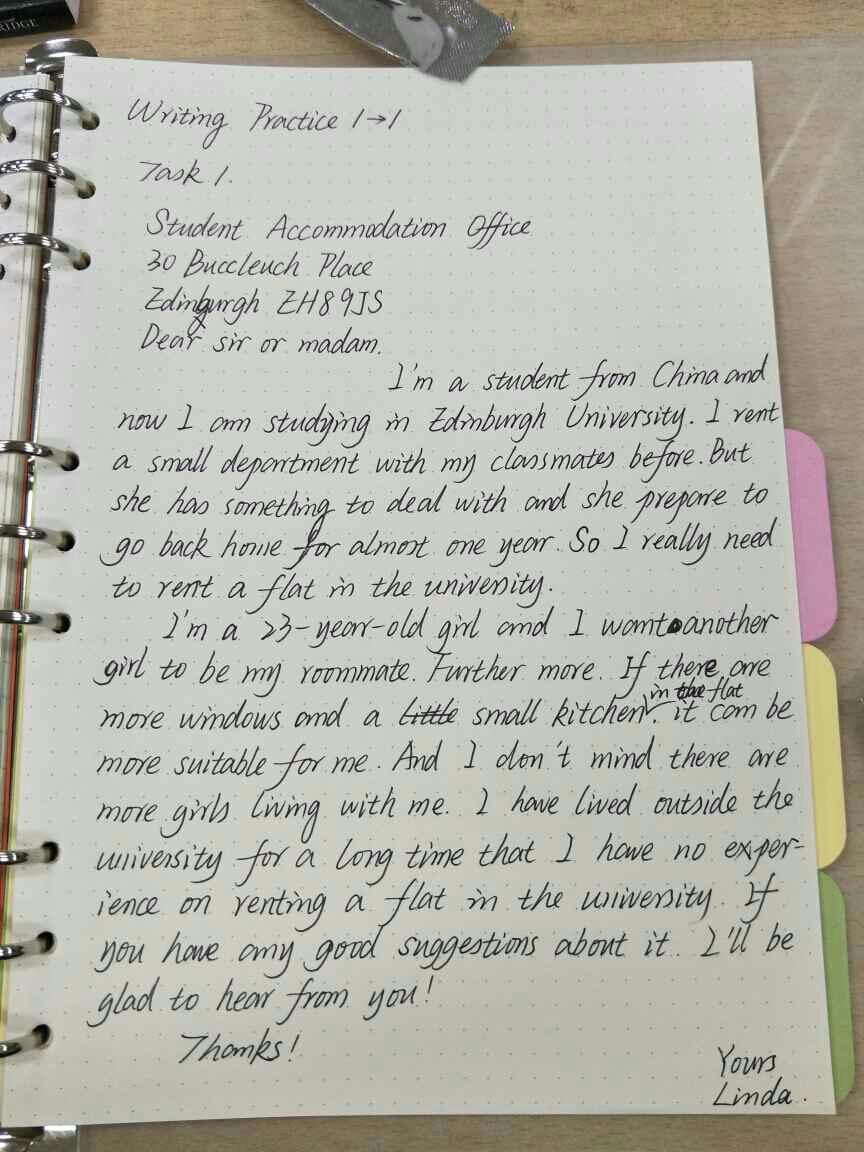 RIDGE
Writing Practice 1→1
Task 1.
Student Accommodation Office
30 Buccleuch Place
Edinburgh EH8 9JS
Dear sir or madam.
I'm a student from China and
now I am studying in Edinburgh University. I rent
a small department with my classmates before. But
she has something to deal with and she prepare to
go back home for almost one year. So I really need
to rent a flat in the university.
I'm a 23-year-old girl and I want another
girl to be my roommate. Further more. If there are
more windows and a little small kitchen in the flat. it can be
more suitable for me. And I don't mind there are
more girls living with me. I have lived outside the
university for a long time that I have no exper-
ience on renting a flat in the university. If
you have any good suggestions about it. I'll be
glad to hear from you!
Thanks!
Yours
Linda.